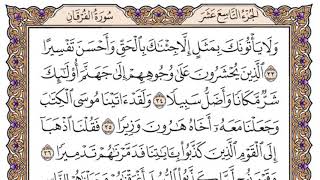 الجزء التاسع عشر
سورة الفرقان
وَلَا يَأْتُونَكَ بِمَثَلٍ إِلَّا جِئْنَٰكَ بِٱلْحَقِّ وَأَحْسَنَ تَفْسِيرًا
٣٣ ٱلَّذِينَ يُحْشَرُونَ عَلَىٰ وُجُوهِهِمْ إِلَىٰ جَهَنَّمَ أُو۟لَٰٓئِكَ
شَرٌّ مَّكَانًا وَأَضَلُّ سَبِيلًا ٣٤ وَلَقَدْ ءَاتَيْنَا مُوسَى ٱلْكِتَٰبَ
وَجَعَلْنَا مَعَهُۥٓ أَخَاهُ هَٰرُونَ وَزِيرًا ٣٥ فَقُلْنَا ٱذْهَبَآ
إِلَى ٱلْقَوْمِ ٱلَّذِينَ كَذَّبُوا۟ بِـَٔايَٰتِنَا فَدَمَّرْنَٰهُمْ تَدْمِيرًا ٣٦